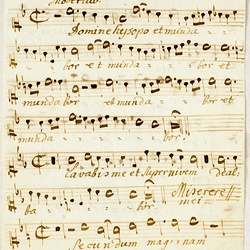 Domine hysopo et munda
bor et munda bor et
munda bor et munda bor et
munda bor
Lavabis me et super nivem deal:
ba bor Miserere
mei
Secundum magnam